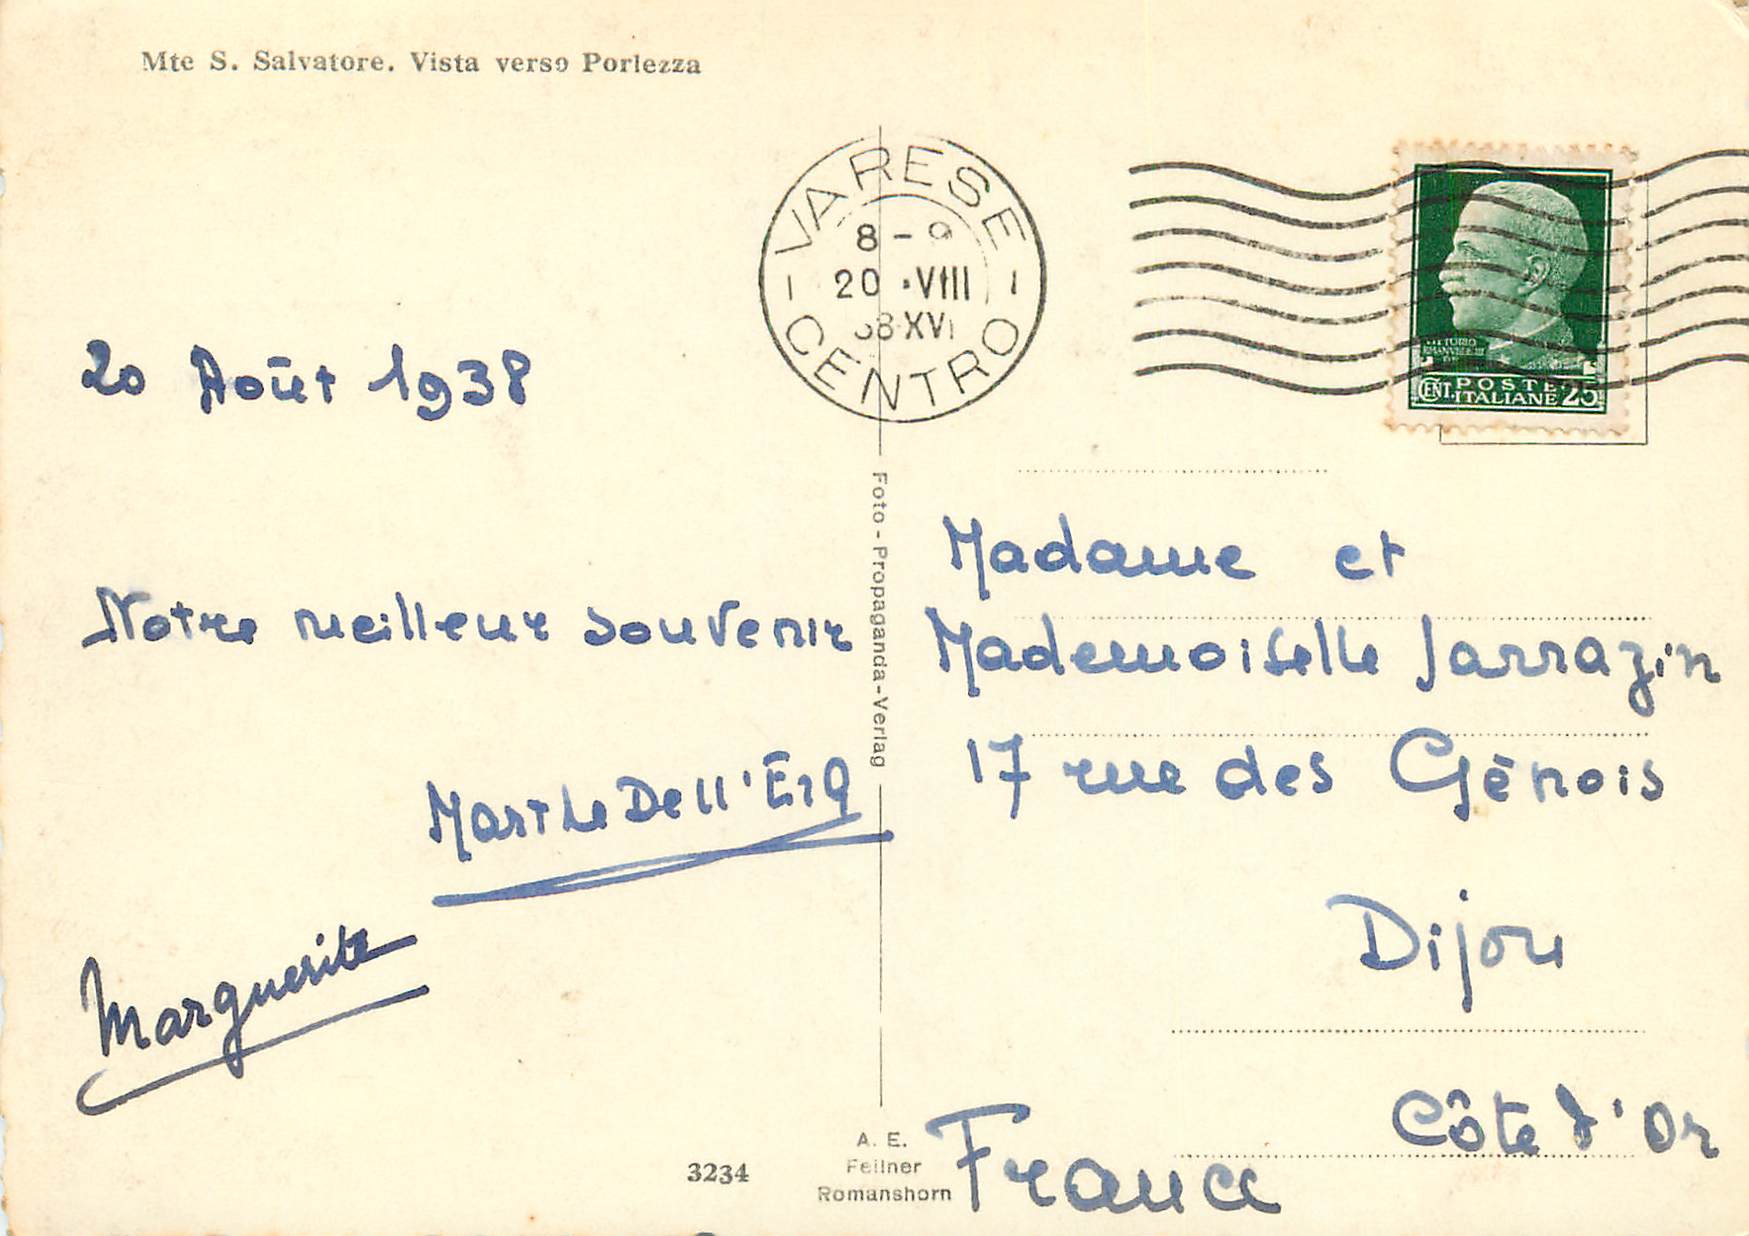 Mte S. Salvatore. Vista verso Porlezza
VARESE
8 - 9
20 · VIII
38 XVI
CENTRO
VITTORIO
EMANVELE III
CENT. POSTE ITALIANE 25
20 Août 1938
Notre meilleur souvenir
Marthe Dell'Era
Marguerite
Foto - Propaganda - Verlag
Madame et
Mademoiselle Jarrazin
17 rue des Gènois
Dijon
Côte d'Or
France
3234
A. E.
Fellner
Romanshorn